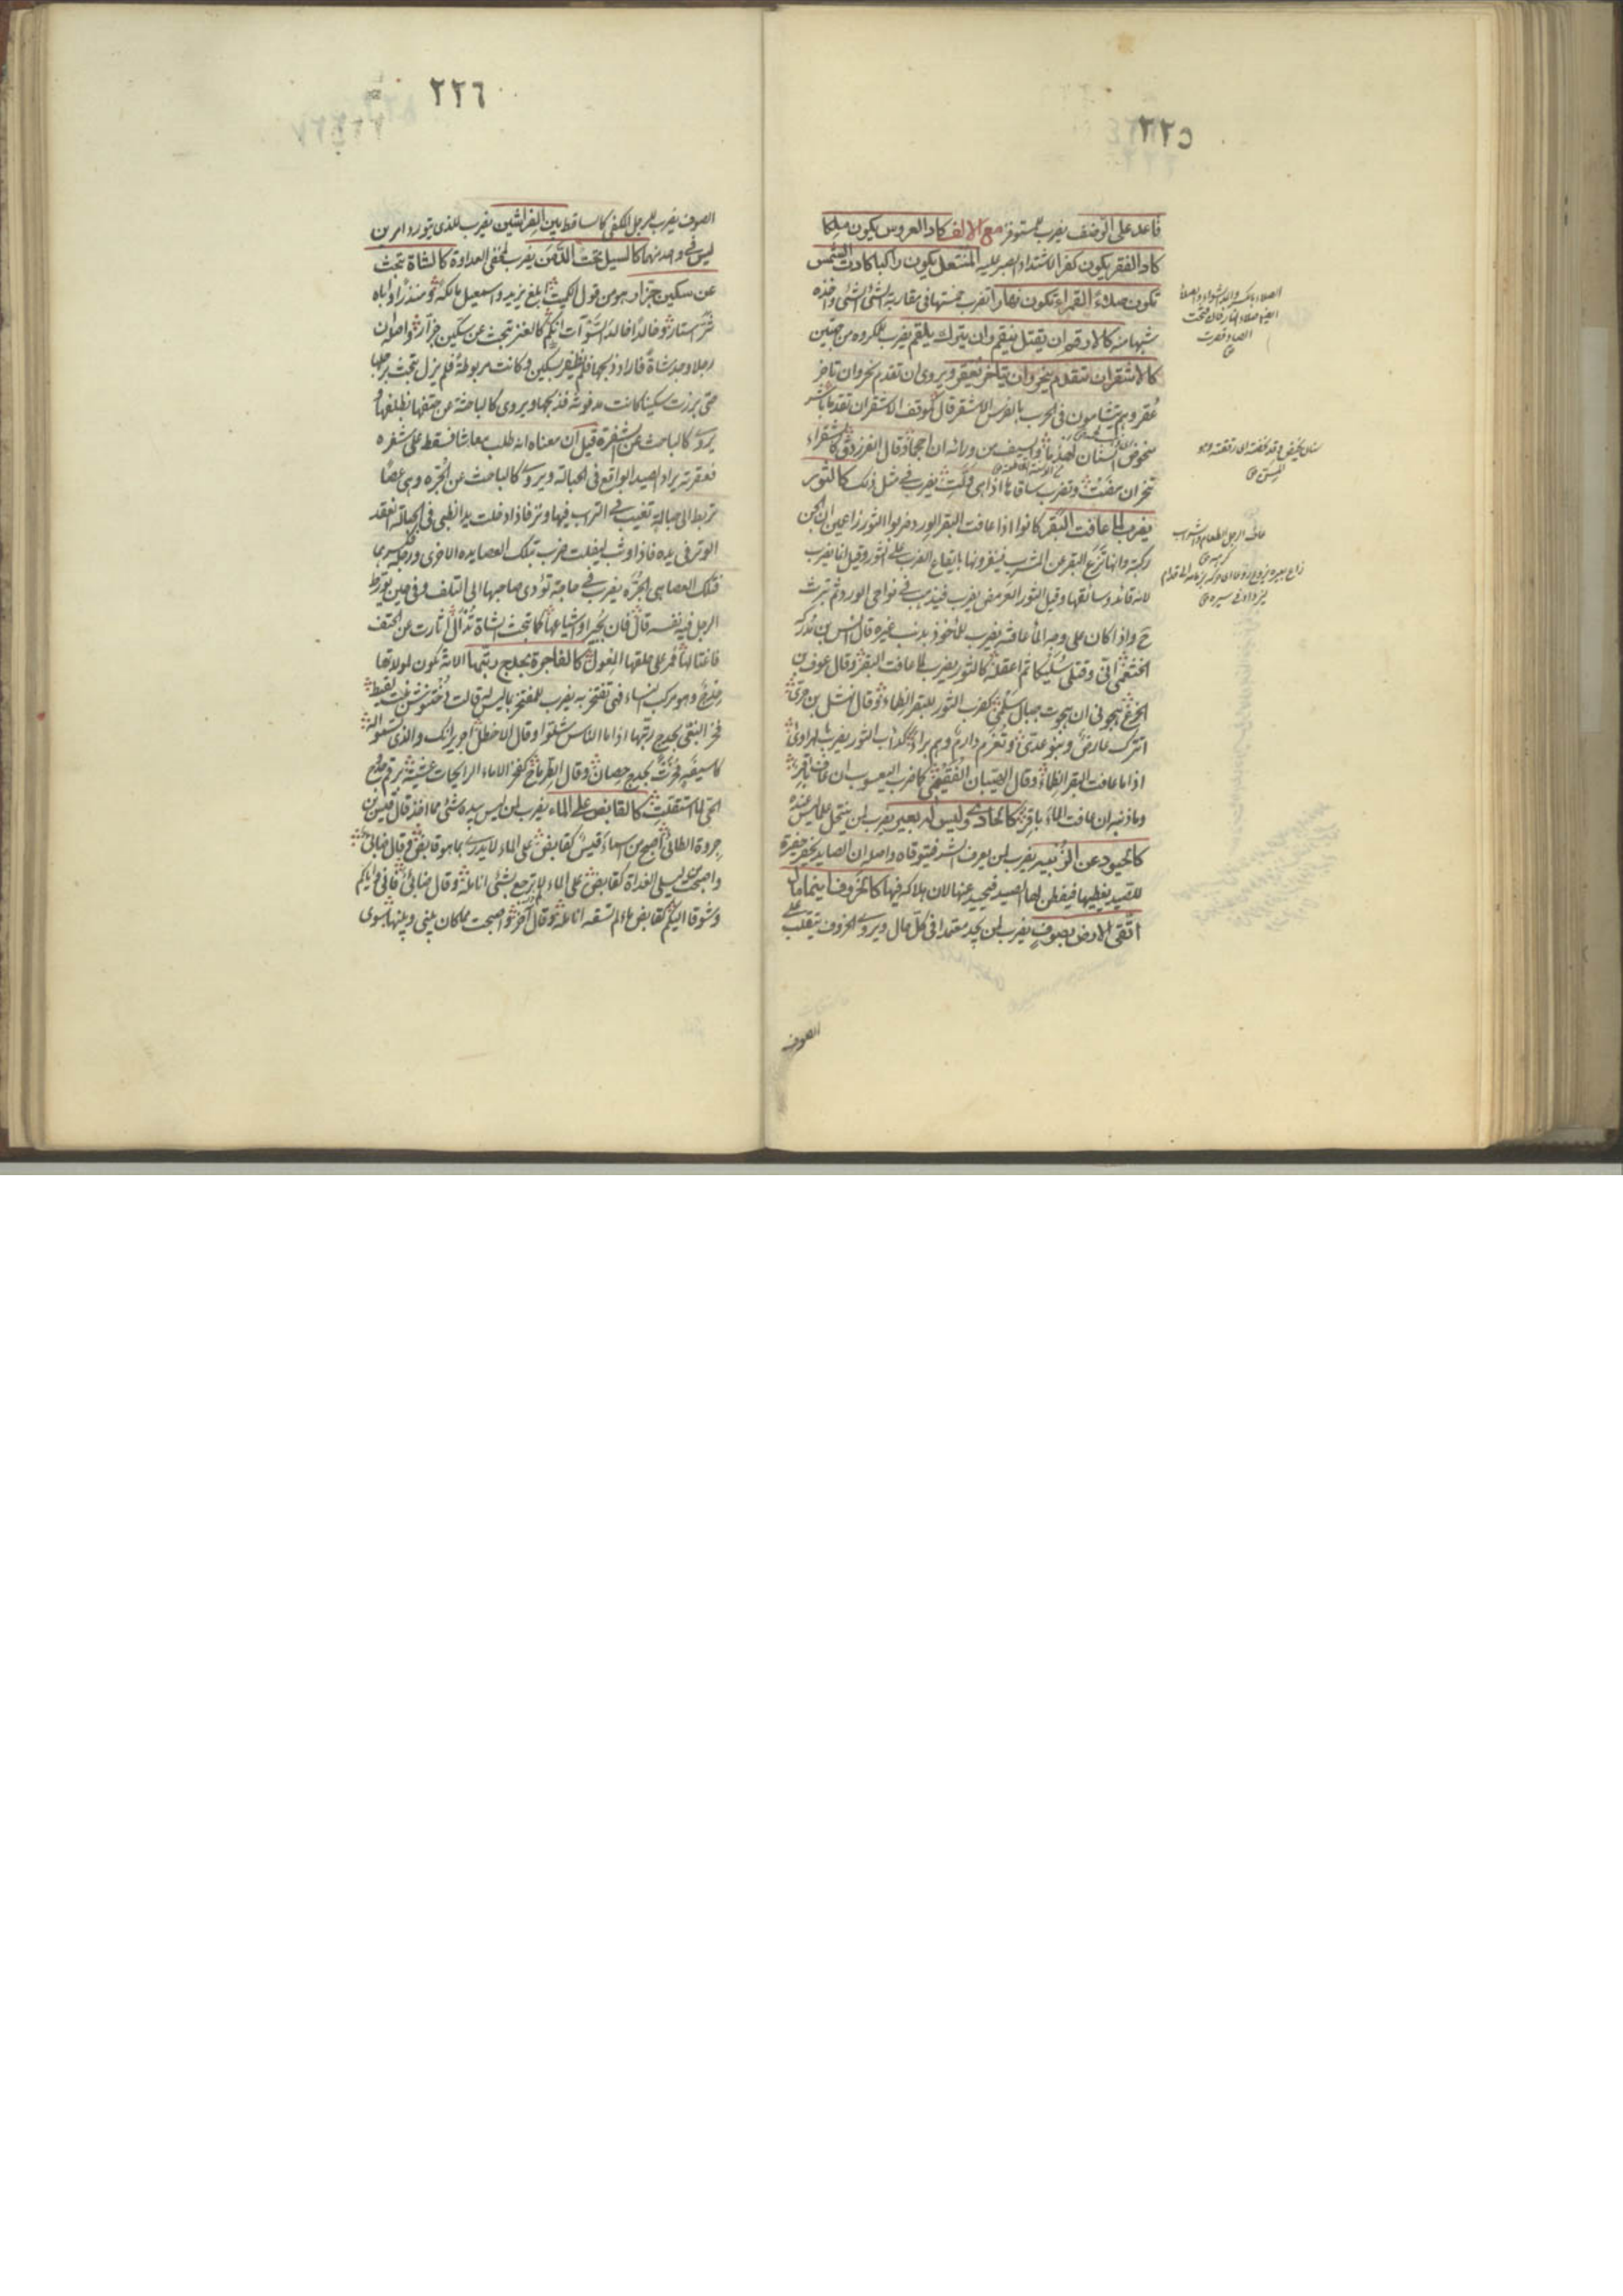 ٢٢٥
قاعد على الرضف يضرب للمستوفز مع الالف كاد العروس يكون ملكا
كاد الفقر يكون كفرا لاشتداد الصبر عليه المنتعل يكون راكبا كادت الشمس
تكون صلاء القمراء تكون نهارا تضرب خمستها في مقاربة الشئ الشئ واخذه
شبها منه كالارقم ان يقتل ينقم وان يترك يلقم يضرب للمكروه من جهتين
كالاشقر ان يتقدم ينحر وان يتاخر يعقر ويروى ان تقدم نحر وان تاخر
عقر وهم يتشامون في الحرب بالفرس الاشقر قال كموقف الاشقر ان تقدما باشر
منخوض السنان لهذما والسيف من ورائه ان احجما وقال الفرزدق كاشقراء
تنحر ان مضت وتضرب ساقاها اذا هي ولت يضرب في مثل ذلك كالثور
يضرب لما عافت البقر كانوا اذا عافت البقر الورد ضربوا الثور زاعمين ان الجن
ركبته وانها تزع البقر عن المشرب فينفرونها بايقاع الضرب على الثور وقيل انما يضرب
لانه قائدها وسائقها وقيل الثور العرمض يضرب فيذهب في نواحي الورد ثم شربت
واذا كان على وجه الماء عافته يضرب للماخوذ بذنب غيره قال انس بن مدركة
الخثعمي اني وقتلي سليكا ثم اعقله كالثور يضرب لما عافت البقر وقال عوف بن
الخرع هجوني ان هجوت جبال سلمى كضرب الثور للبقر الظماء وقال نهشل بن حري
اتترك عارض وبنو عدي وتغرم دارم وهم براء كذاب الثور يضرب بالهراوى
اذا ما عافت البقر الظماء وقال الصيبان الفقيمي كما ضرب اليعسوب ان عاف باقر
وما ذنبه ان عافت الماء باقر كالحادي وليس له بعير يضرب لمن ينتحل ما ليس عنده
كالحيود عن الزبية يضرب لمن يعرف الشر فيتوقاه واصله ان الصايد يحفر حفرة
للصيد يغطيها فيفطن لها الصيد فيحيد عنها لان هلاكه فيها كالخروف اينما مال
اتقى الارض بصوف يضرب لمن يجد معتمدا في كل حال ويروى كالخروف يتقلب على
الصوف
الصلاء بالكسر والمد الشواء والصلاء
ايضا صلاء النار فان فتحت
الصاد قصرت
المسن
عاف الرجل الطعام والشراب
كرهه
٢٢٦
الصوف يضرب للرجل المكفى كالساقط بين الفراشين يضرب للذي يتورد امرين
ليس في واحد منهما كالسيل تحت الدمن يضرب لمخفى العداوة كالشاة تبحث
عن سكين جزار هو من قول الكميت ابلغ يزيد واسمعيل مالكة ومنذرا واباه
شر استار وخالدا خالد السوآت انكم كالعنز تبحث عن سكين جزار واصله ان
رجلا وجد شاة فاراد ذبحها فلم يظفر بسكين وكانت مربوطة فلم يزل تبحث برجلها
حتى برزت سكينا كانت مدفونة فذبحها ويروى كالباحثة عن حتفها بظلفها و
يروى كالباحث عن الشفرة قيل ان معناه انه طلب معاشا فسقط على شفره
فعقرته يراد الصيد الواقع في الحبالة ويروى كالباحث عن الجرة وهي عصا
تربط الى حبالة تغيب في التراب فيها وتر فاذا دخلت يد الظبي في الحبالة انعقد
الوتر في يده فاذا وثب ليفلت ضرب بتلك العصا يده الاخرى ورجله فكسرها
فتلك العصا هي الجرة يضرب في حاجة تؤدى صاحبها الى التلف وفي حين يورط
الرجل فيه نفسه قال فان بجيرا واشياعها كما تبحث الشاة تدألى اثارت عن الحتف
فاغتالها فمر على حلقها المغول كالفاجرة بحدج ربتها الامة تكون لمولاتها
حدج وهو مركب النساء فهي تفتخر به يضرب للمفتخر بما ليس له قالت دختنوس بنت لقيط
فخر البغي بحدج ربتها اذا ما الناس شلوا وقال الاخطل اجرير انك والذي تسموا له
كاسيفة فخرت بحدج حصان وقال الطرماح كفخر الاماء الرايحات عشية برقم حدوج
الحي لما استقلت كالقابض على الماء يضرب لمن ليس بيده شئ مما اخذ قال قيس بن
جروة الطائي اصبح من اسماء قيس كقابض على الماء لا يدري بما هو قابض وقال ضابئ
واصبحت من ليلى الغداة كقابض على الماء لم ترجع بشئ انامله وقال ضابئ فاني وايكم
وشوقا اليكم كقابض ماء لم تسقه انامله وقال آخر واصبحت مما كان بيني وبينها سوى